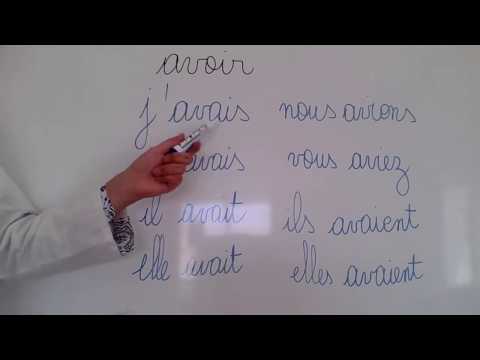 avoir
j'avais nous avions
avais vous aviez
il avait ils avaient
elle avait elles avaient